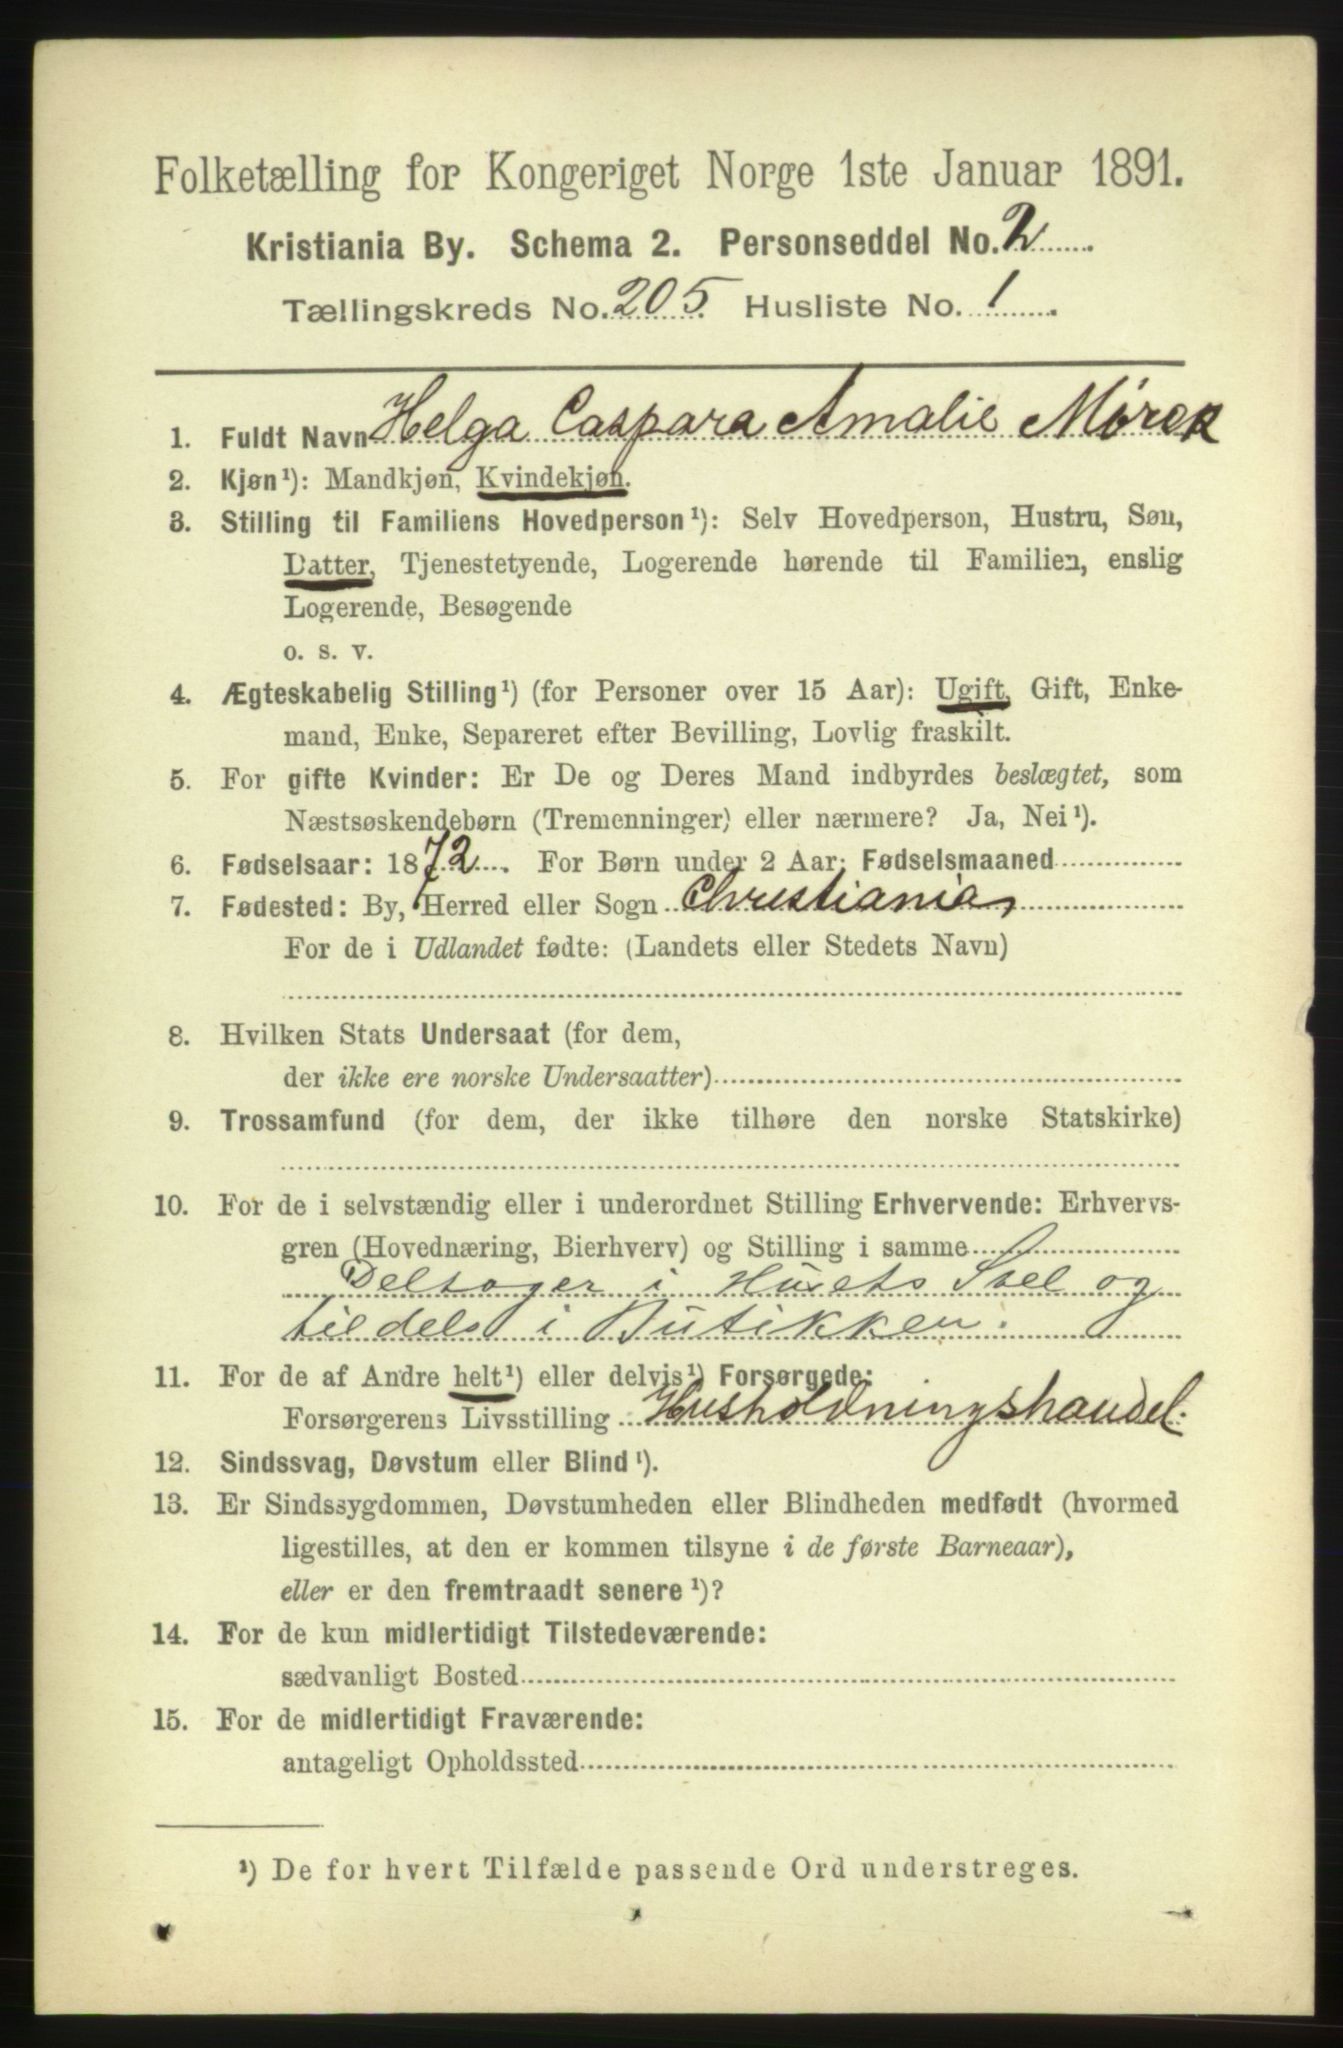 Folketælling for Kongeriget Norge 1ste Januar 1891.
Kristiania By. Schema 2. Personseddel No. 2
Tællingskreds No. 205. Husliste No. 1
1. Fuldt Navn Helga Caspara Amalie Mörck
2. Kjøn¹): Mandkjøn, Kvindekjøn.
3. Stilling til Familiens Hovedperson¹): Selv Hovedperson, Hustru, Søn,
Datter, Tjenestetyende, Logerende hørende til Familien, enslig
Logerende, Besøgende
o. s. v.
4. Ægteskabelig Stilling¹) (for Personer over 15 Aar): Ugift, Gift, Enke-
mand, Enke, Separeret efter Bevilling, Lovlig fraskilt.
5. For gifte Kvinder: Er De og Deres Mand indbyrdes beslægtet, som
Næstsøskendebørn (Tremenninger) eller nærmere? Ja, Nei¹).
6. Fødselsaar: 1872. For Børn under 2 Aar: Fødselsmaaned
7. Fødested: By, Herred eller Sogn Christiania
For de i Udlandet fødte: (Landets eller Stedets Navn)
8. Hvilken Stats Undersaat (for dem,
der ikke ere norske Undersaatter)
9. Trossamfund (for dem, der ikke tilhøre den norske Statskirke)
10. For de i selvstændig eller i underordnet Stilling Erhvervende: Erhvervs-
gren (Hovednæring, Bierhverv) og Stilling i samme
Deltager i Husets Stel og
tildels i Butikken.
11. For de af Andre helt¹) eller delvis¹) Forsørgede:
Forsørgerens Livsstilling Husholdningshandel.
12. Sindssvag, Døvstum eller Blind¹).
13. Er Sindssygdommen, Døvstumheden eller Blindheden medfødt (hvormed
ligestilles, at den er kommen tilsyne i de første Barneaar),
eller er den fremtraadt senere¹)?
14. For de kun midlertidigt Tilstedeværende:
sædvanligt Bosted
15. For de midlertidigt Fraværende:
antageligt Opholdssted
¹) De for hvert Tilfælde passende Ord understreges.